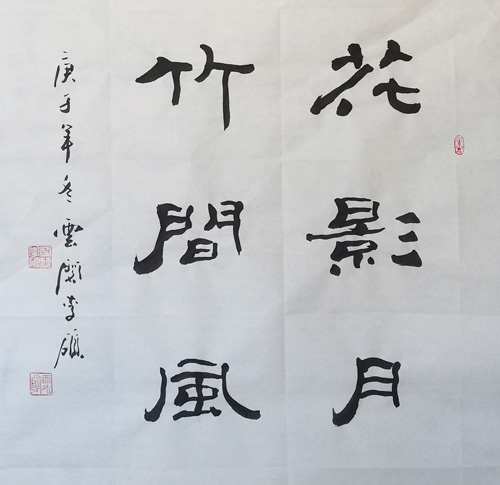 花影月
竹間風
庚子年冬雲閣李碩